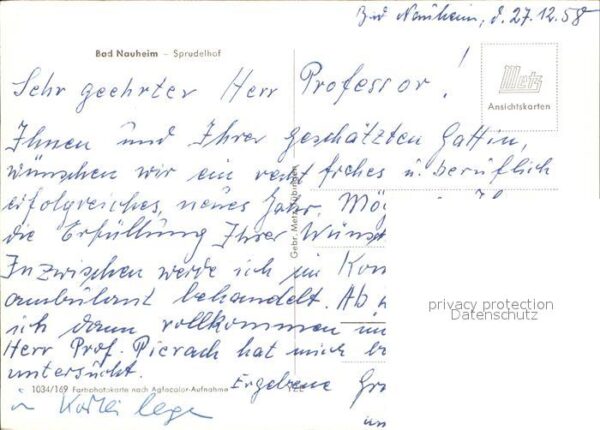 Bad Nauheim, d. 27.12.58
Bad Nauheim – Sprudelhof
Metz
Ansichtskarten
Sehr geehrter Herr Professor!
Ihnen und Ihrer geschätzten Gattin,
wünschen wir ein recht frohes u. beruflich
erfolgreiches, neues Jahr.
die Erfüllung Ihrer
Inzwischen werde ich im
ambulant behandelt. Ab
ich dann vollkommen
Herr Prof. Pierach hat mich
untersucht.
Ergebene
1034/169 Farbphotokarte nach Agfacolor-Aufnahme
Gebr. Metz Tübingen
privacy protection
Datenschutz